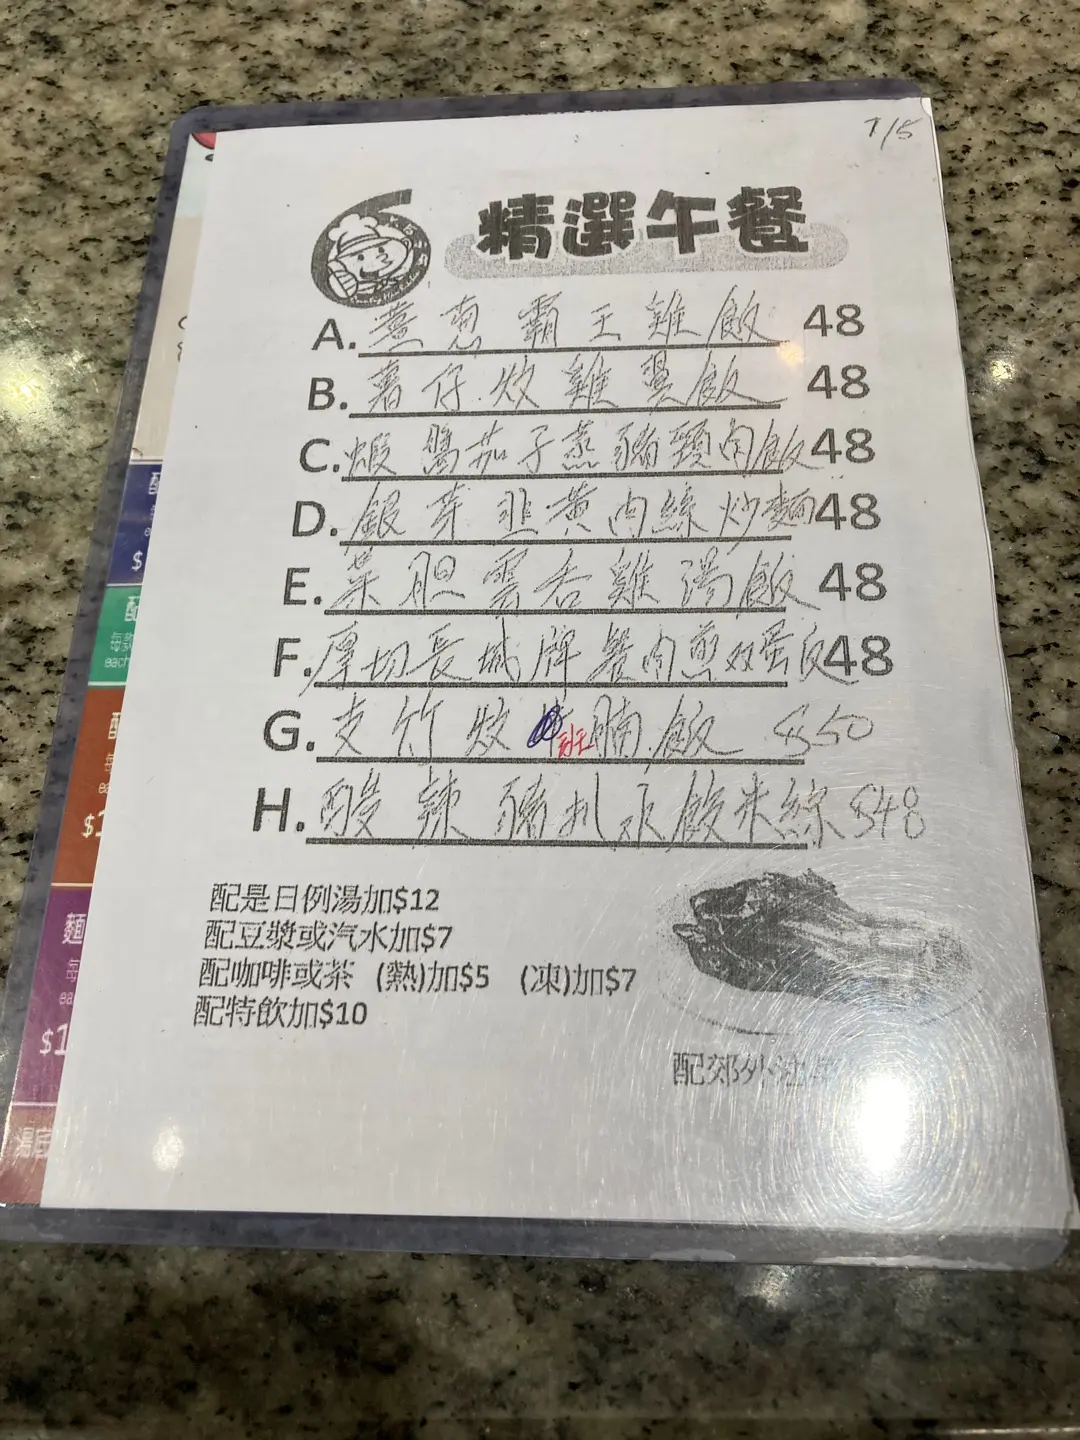 7/5
精選午餐
A. 薑葱霸王雞飯 48
B. 薯仔炆雞翼飯 48
C. 蝦醬茄子蒸豬頸肉飯 48
D. 銀芽韭黃肉絲炒麵 48
E. 菜胆雲吞雞湯飯 48
F. 厚切長城牌餐肉煎双蛋飯 48
G. 支竹炆班腩飯 $50
H. 酸辣豬扒瓜飯米線 $48
配是日例湯加$12
配豆漿或汽水加$7
配咖啡或茶 (熱)加$5 (凍)加$7
配特飲加$10
配郊外油
配
$
配
each
$
麵
$1